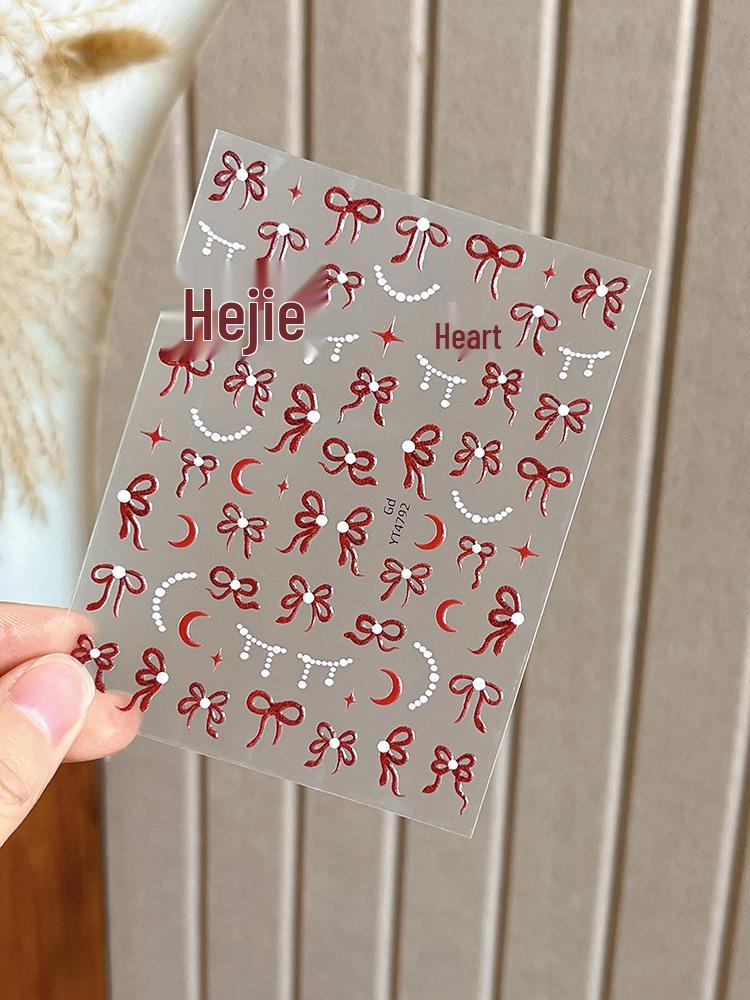 Hejie
Heart
Gd
YT4792